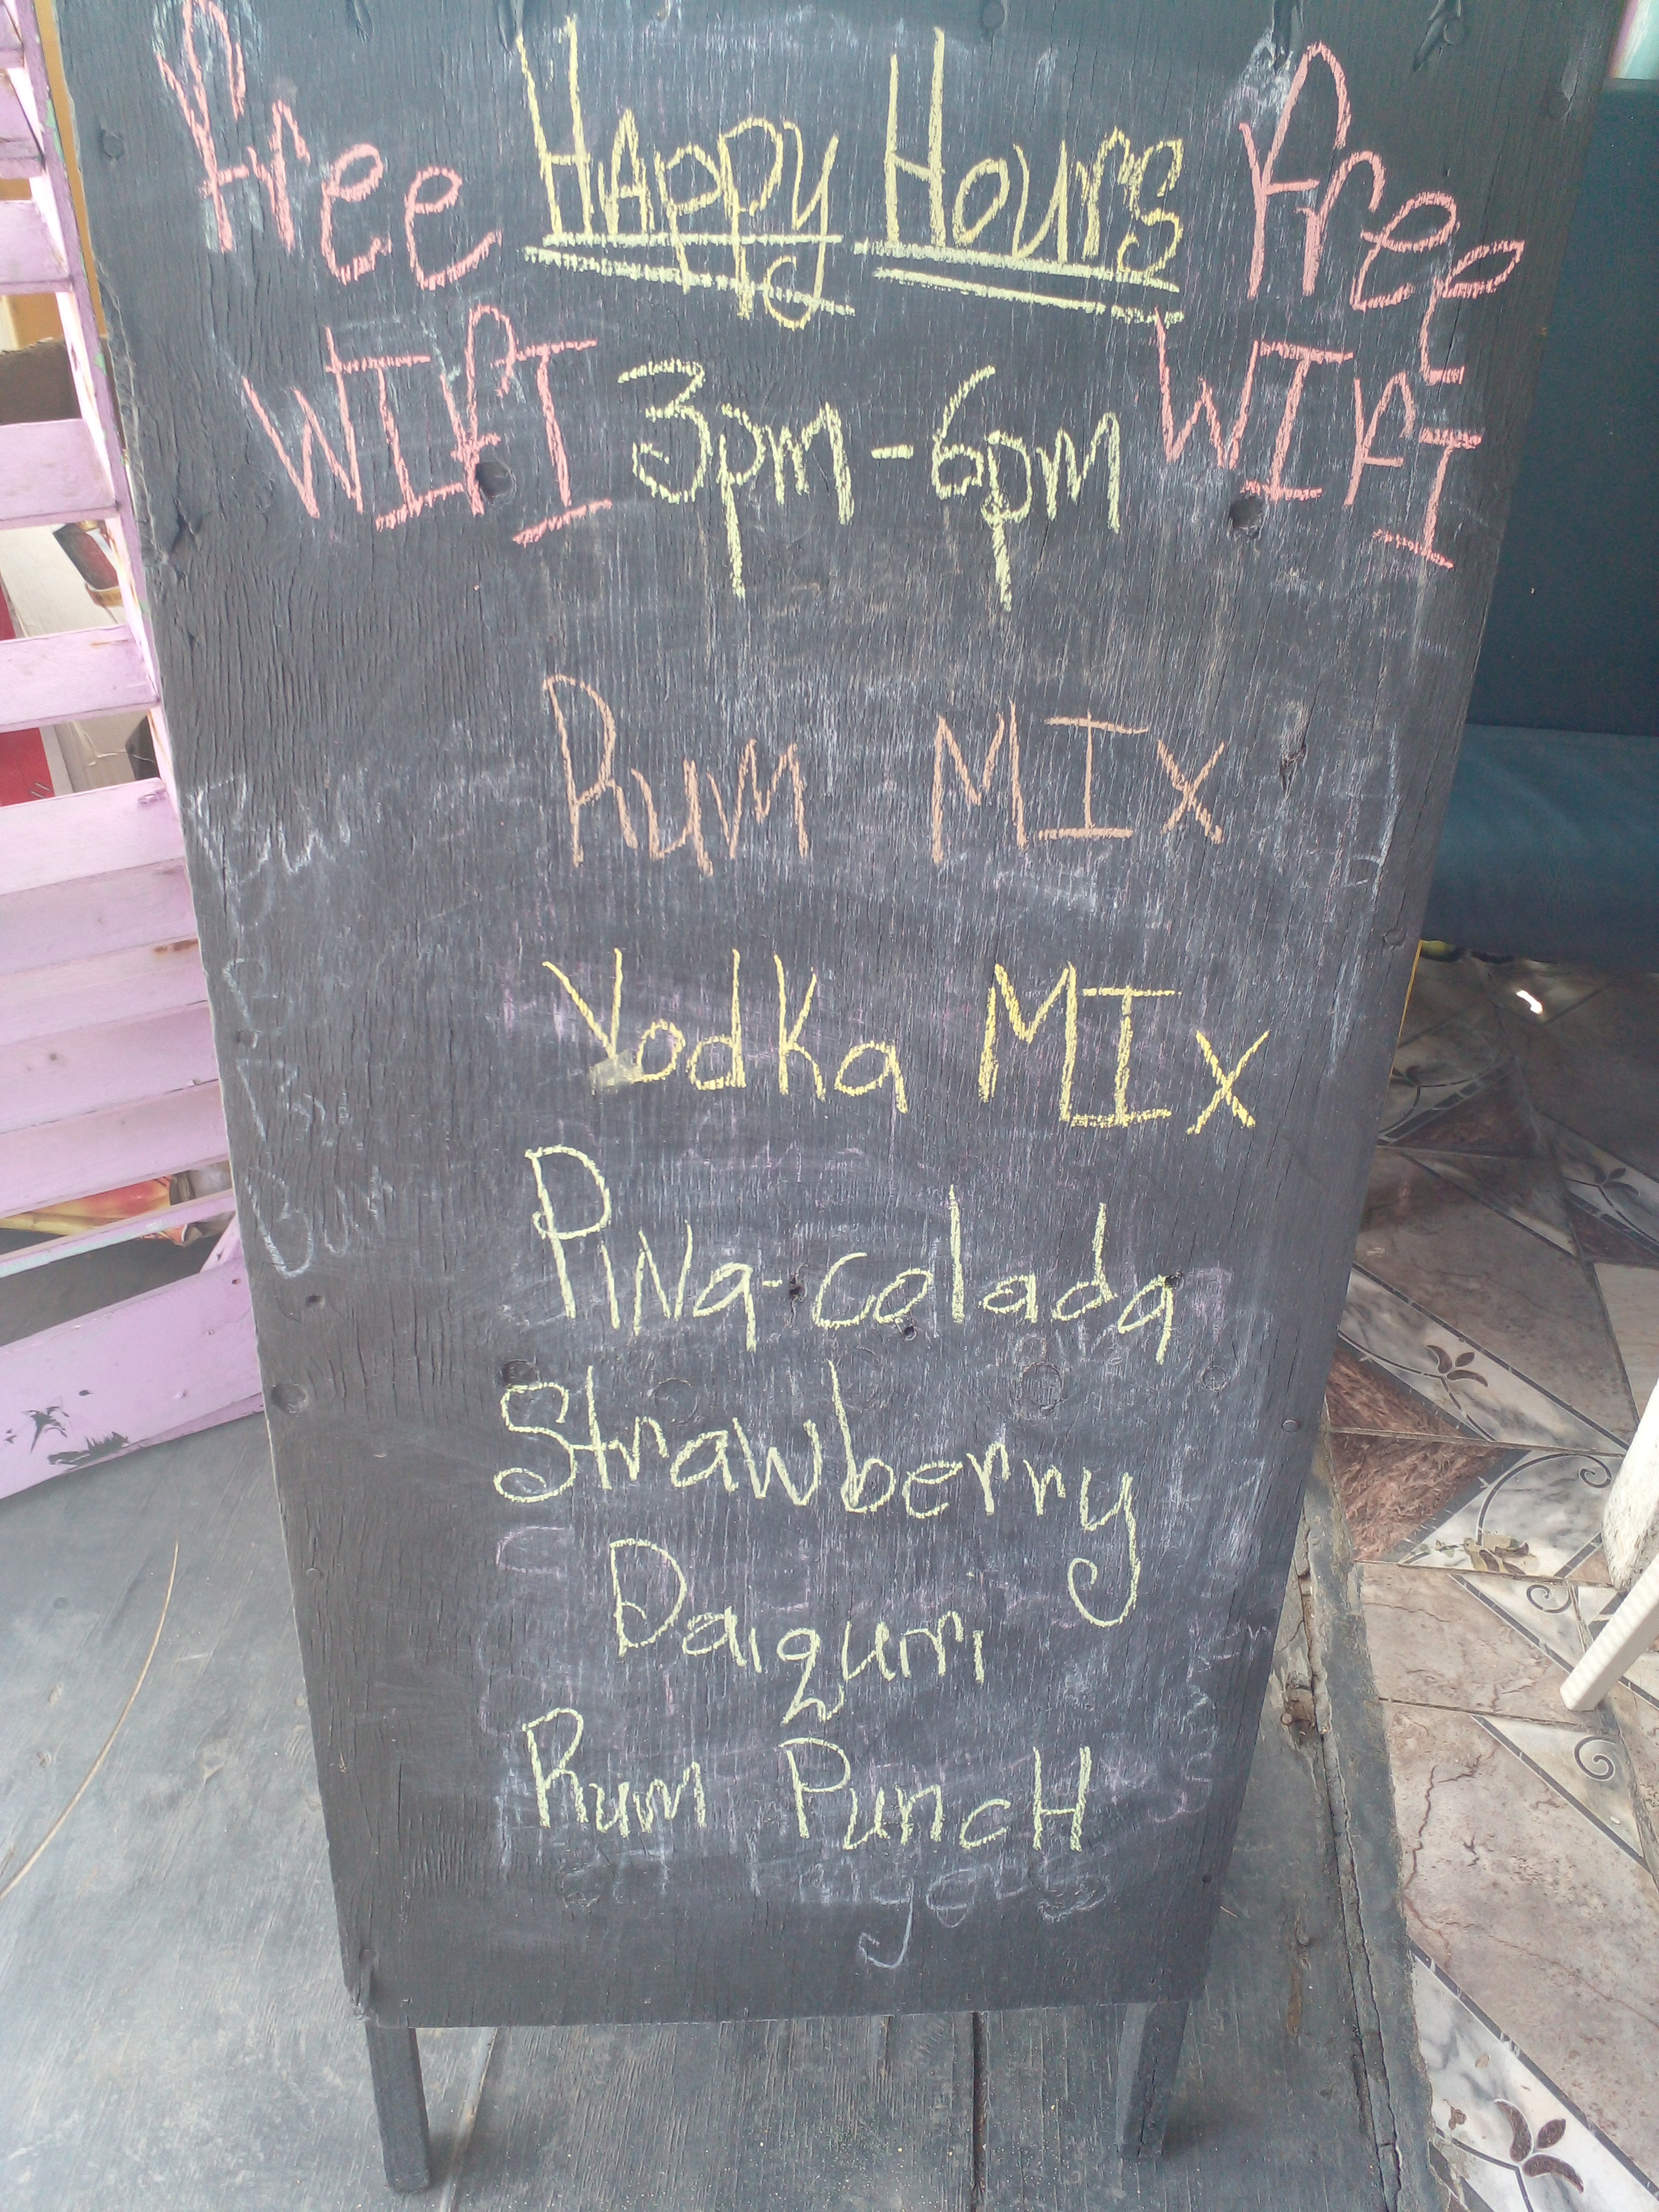 Free Happy Hours Free
WIFI 3pm-6pm WIFI
Rum MIX
Vodka MIX
PINa-colada
Strawberry
Daiquiri
Rum PuncH